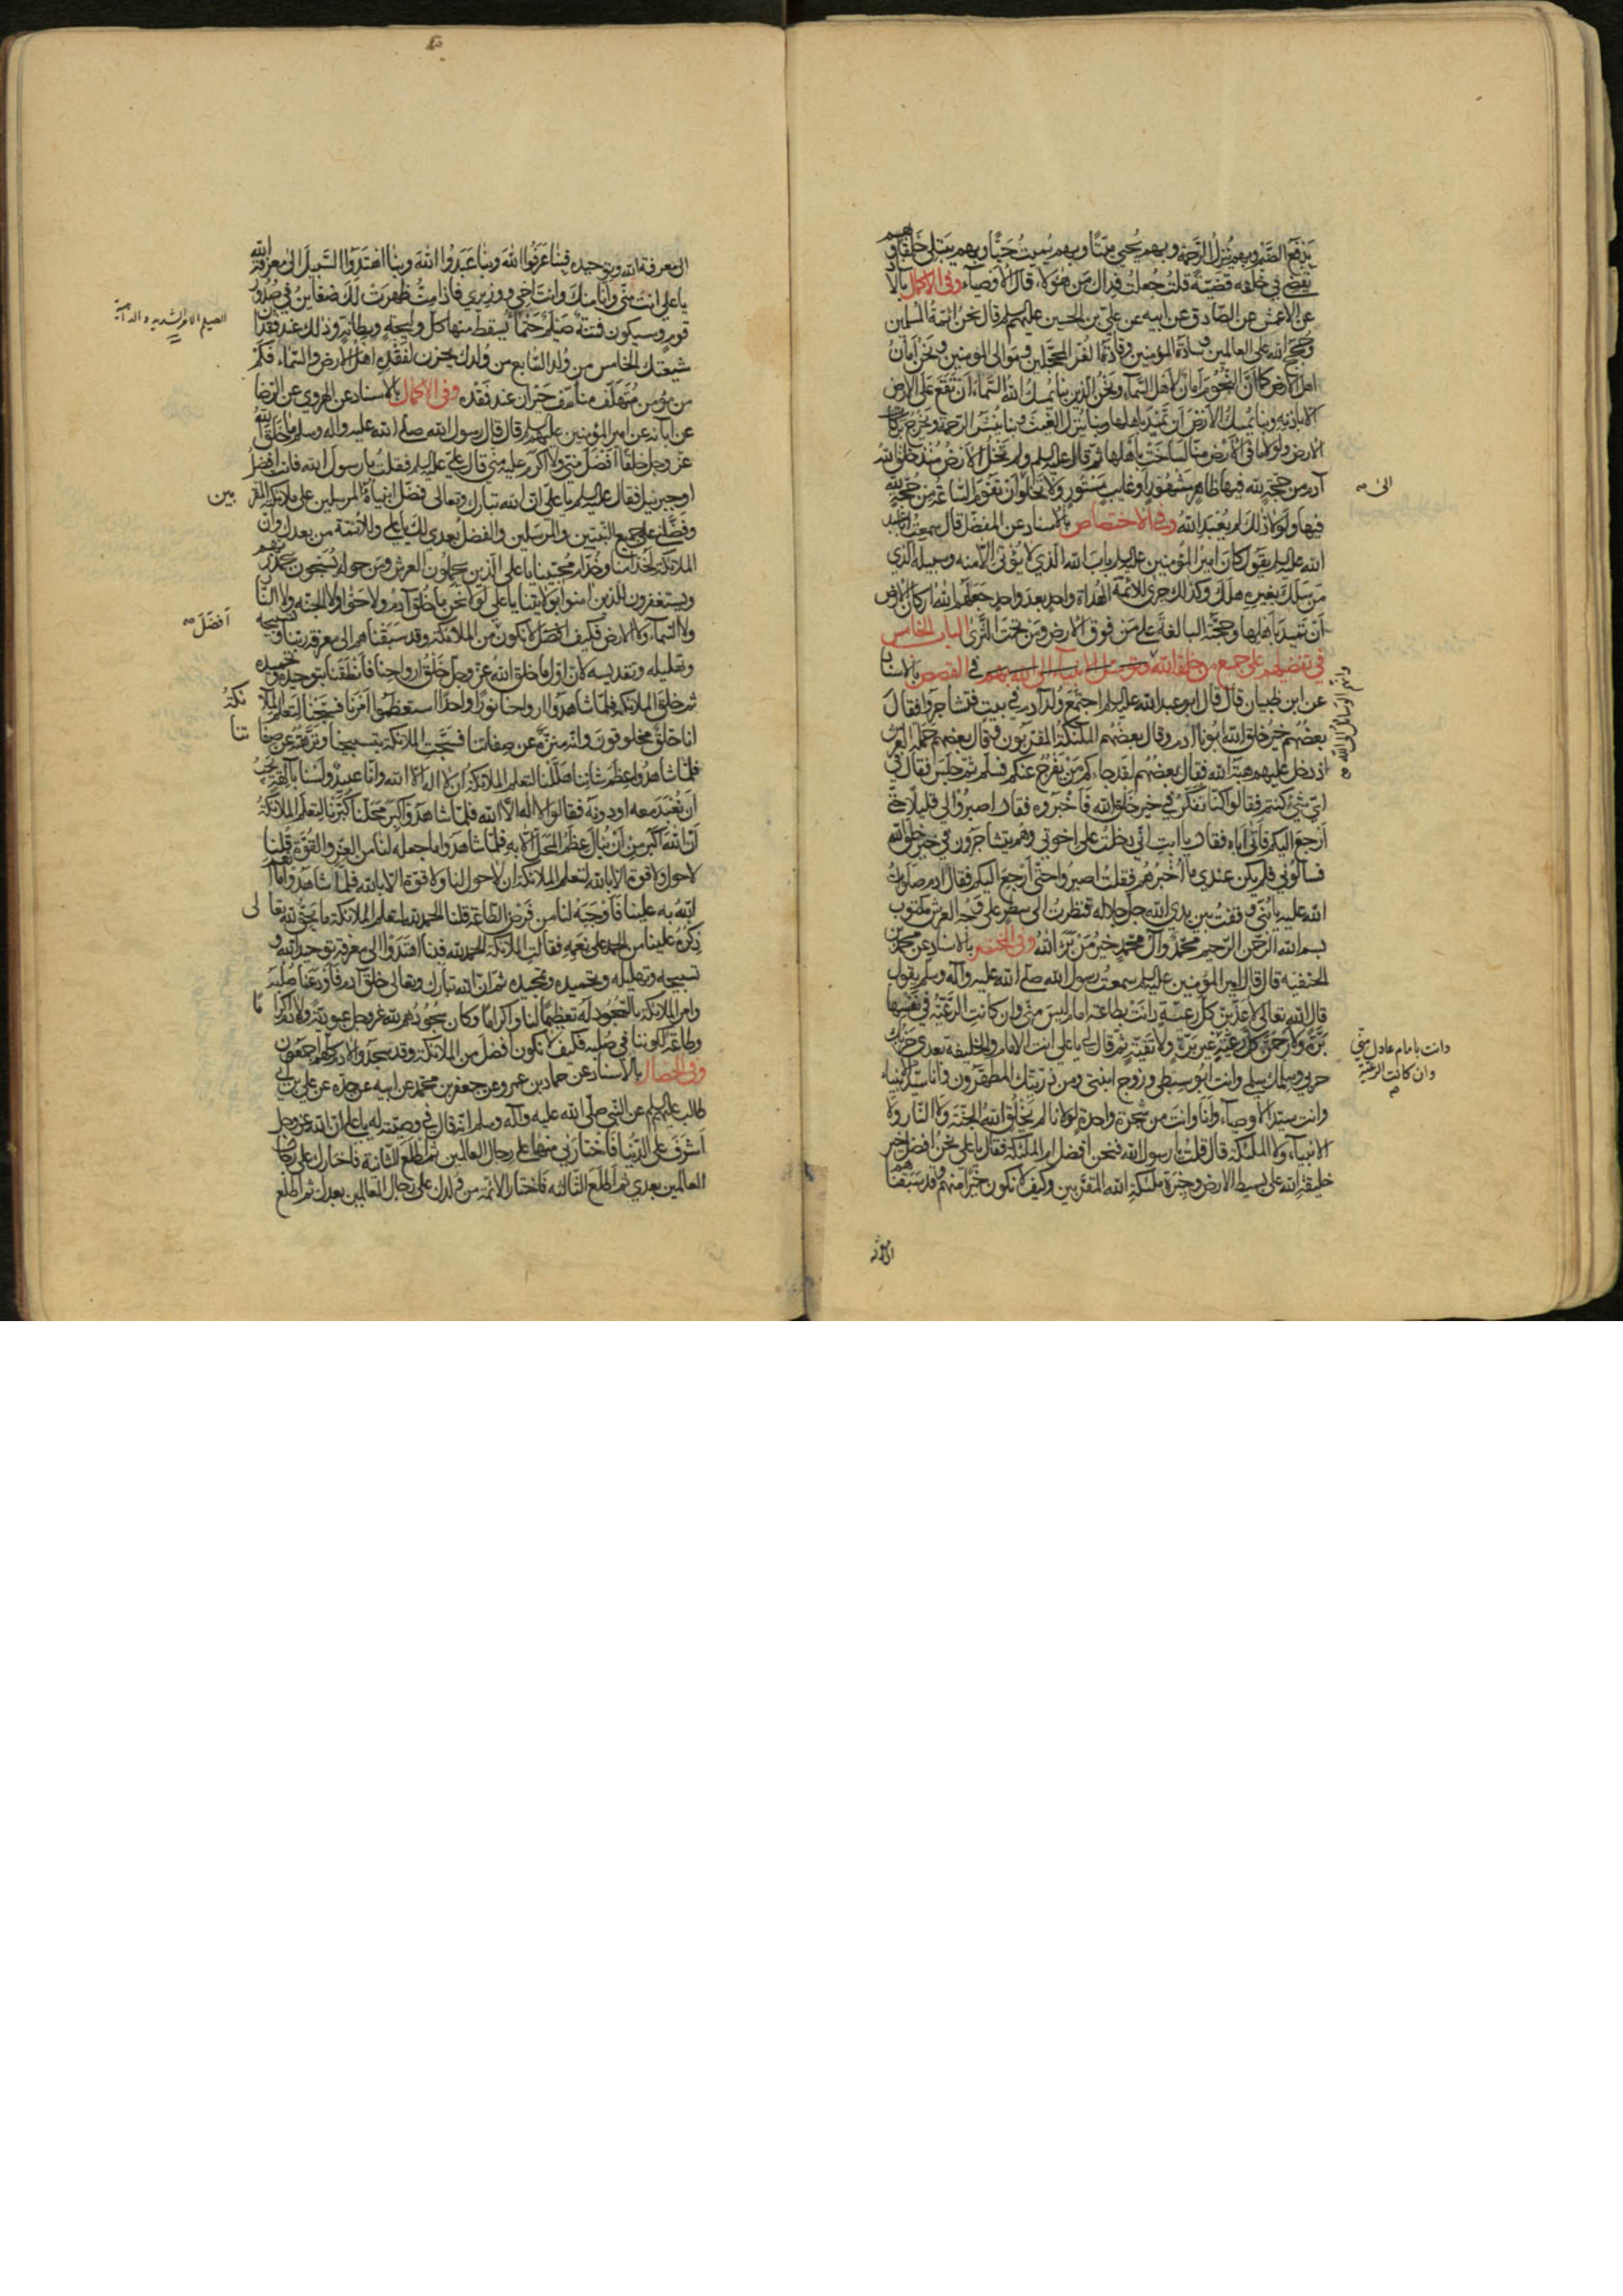 يدفع الضيم وبهم ينزل الرحمة وبهم يحيي ميتا وبهم يميت حيا وبهم يبتلي خلقه وبهم
يقضي في خلقه قضية قلت جعلت فداك من هؤلاء قال الأوصياء وفي الاكمال بالا
عن الأعمش عن الصادق عن ابيه عن علي بن الحسين عليهم قال نحن ائمة المسلمين
وحجج الله على العالمين وسادة المؤمنين وقادة الغر المحجلين وموالى المؤمنين ونحن أمان
اهل الأرض كما أن النجوم أمان لأهل السماء ونحن الذين بنا يمسك الله السماء أن تقع على الارض
الا باذنه وبنا يمسك الأرض أن تميد باهلها وبنا ينزل الغيث وبنا ينشر الرحمة ويخرج بركات
الأرض ولولا ما في الأرض منا لساخت بأهلها ثم قال عليه السلم ولم تخل الأرض منذ خلق الله
آدم من حجة لله فيها ظاهر مشهور أو غايب مستور ولا تخلو أن تقوم الساعة من حجة لله
الى
فيها ولولا ذلك لم يعبد الله وفي الاختصاص بالاسناد عن المفضل قال سمعت ابا عبد
الله عليه يقول كان امير المؤمنين عليه باب الله الذي لا يؤتى الا منه وسبيله الذي
من سلك بغيره هلك وكذلك جرى للائمة الهداة واحد بعد واحد جعلهم الله اركان الأرض
أن تميد باهلها وحجته البالغة على من فوق الارض ومن تحت الثرى الباب الخامس
في تفضيلهم على جميع من خلق الله وتوسل الانبياء الى الله بهم في القصص بالاسناد
وانهم الوسائل الى الله
عن ابن ظبيان قال قال ابو عبد الله عليه السلم اجتمع ولد آدم في بيت فتشاجروا فقال
بعضهم خير خلق الله ابونا آدم وقال بعضهم الملئكة المقربون وقال بعضهم حملة العرش
اذ دخل عليهم هبة الله فقال بعضهم لقد جاءكم من يفرج عنكم فسلم ثم جلس فقال في
اي شيء كنتم فقالوا كنا نفكر في خير خلق الله فأخبروه فقال اصبروا لي قليلا حتى
أرجع اليكم فأتى اباه فقال يا ابت اني دخلت على اخوتي وهم يتشاجرون في خير خلق الله
فسألوني فلم يكن عندي ما أخبرهم فقلت اصبروا حتى أرجع اليكم فقال آدم صلوات
الله عليه يا بني وقفت بين يدي الله جل جلاله فنظرت الى سطر على وجه العرش مكتوب
بسم الله الرحمن الرحيم محمد وآل محمد خير من برأ الله وفي المحتضر بالاسناد عن محمد بن
الحنفية قال قال امير المؤمنين عليه السلم سمعت رسول الله صلى الله عليه وآله وسلم يقول
قال الله تعالى لأعذبن كل رعية دانت بطاعة امام ليس مني وان كانت الرعية في نفسها
برة ولأرحمن كل رعية غير برة ولا تقية ثم قال لي يا علي انت الامام والخليفة بعدي حربك
دانت بامام عادل مني
وان كانت الرعية
حربي وسلمك سلمي وانت ابو سبطي وزوج ابنتي ومن ذريتك المطهرون وأنا سيد الأنبياء
وانت سيد الأوصياء وأنا وانت من شجرة واحدة لولانا لم يخلق الله الجنة ولا النار ولا
الانبياء ولا الملئكة قال قلت يا رسول الله فنحن افضل ام الملئكة فقال يا علي نحن افضل خير
خليقة الله على بسيط الارض وخيرة ملئكة الله المقربين وكيف لا نكون خيرا منهم وقد سبقناهم
الى معرفة
الى معرفة الله وتوحيده فبنا عرفوا الله وبنا عبدوا الله وبنا اهتدوا السبيل الى معرفة الله
يا علي انت مني وأنا منك وانت اخي ووزيري فاذا مت ظهرت لك ضغاين في صدور
قوم وسيكون فتنة صيلم حتما يسقط منها كل وليجة وبطانة وذلك عند فقدان
الصيلم الامر الشديد والداهية
شيعتك الخامس من ولد السابع من ولدك يحزن لفقده اهل الأرض والسماء فكم
من مؤمن متلهف متأسف حيران عند فقده وفي الاكمال بالاسناد عن الهروي عن الرضا
عن آبائه عن امير المؤمنين عليهم السلم قال قال رسول الله صلى الله عليه واله وسلم ما خلق الله
عز وجل خلقا أفضل مني ولا أكرم عليه مني قال علي عليه السلم فقلت يا رسول الله فانت افضل
او جبرئيل فقال عليه السلم يا علي ان الله تبارك وتعالى فضل انبياءه المرسلين على ملائكته المقربين
وفضلني على جميع النبيين والمرسلين والفضل بعدي لك يا علي وللائمة من بعدك وان
الملائكة لخدامنا وخدام محبينا يا علي الذين يحملون العرش ومن حوله يسبحون بحمد ربهم
ويستغفرون للذين امنوا بولايتنا يا علي لولا نحن ما خلق آدم ولا حوا ولا الجنة ولا النار
ولا السماء ولا الارض فكيف لا نكون من الملائكة وقد سبقناهم الى معرفة ربنا وتسبيحه
أفضل
وتهليله وتقديسه لان اول ما خلق الله عز وجل خلق ارواحنا فأنطقنا بتوحيده وتحميده
ثم خلق الملائكة فلما شاهدوا ارواحنا نورا واحدا استعظموا أمرنا فسبحنا لتعلم الملائكة
انا خلق مخلوقون وانه منزه عن صفاتنا فسبحت الملائكة بتسبيحنا ونزهته عن صفاتنا
فلما شاهدوا عظم شاننا هللنا لتعلم الملائكة أن لا اله الا الله وانا عبيد ولسنا بآلهة يجب
أن نعبد معه او دونه فقالوا لا اله الا الله فلما شاهدوا كبر محلنا كبرنا لتعلم الملائكة
أن الله أكبر من أن ينال عظم المحل الا به فلما شاهدوا ما جعله لنا من العز والقوة قلنا
لا حول ولا قوة الا بالله لتعلم الملائكة ان لا حول لنا ولا قوة الا بالله فلما شاهدوا ما انعم
الله به علينا فأوجبه لنا من فرض الطاعة قلنا الحمد لله لتعلم الملائكة ما يحق لله تعالى
ذكره علينا من الحمد على نعمه فقالت الملائكة الحمد لله فبنا اهتدوا الى معرفة توحيد الله و
تسبيحه وتهليله وتحميده وتمجيده ثم ان الله تبارك وتعالى خلق آدم فأودعنا صلبه
وامر الملائكة بالسجود له تعظيما لنا واكراما وكان سجودهم لله عز وجل عبودية ولآدم اكراما
وطاعة لكوننا في صلبه فكيف لا نكون افضل من الملائكة وقد سجدوا لآدم كلهم اجمعون
وفي الخصال بالاسناد عن حماد بن عمرو عن جعفر بن محمد عن ابيه عن جده عن علي بن ابي
طالب عليهم السلم عن النبي صلى الله عليه وآله وسلم انه قال في وصيته له يا علي ان الله عز وجل
أشرف على الدنيا فاختارني منها على رجال العالمين ثم اطلع الثانية فاختارك على رجال
العالمين بعدي ثم اطلع الثالثة فاختار الائمة من ولدك على رجال العالمين بعدك ثم اطلع